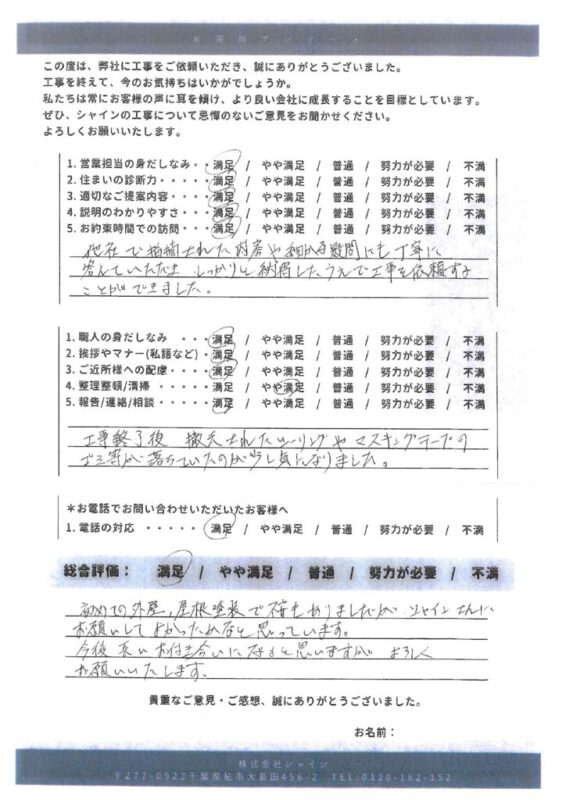 お客様アンケート
この度は、弊社に工事をご依頼いただき、誠にありがとうございました。
工事を終えて、今のお気持ちはいかがでしょうか。
私たちは常にお客様の声に耳を傾け、より良い会社に成長することを目標としています。
ぜひ、シャインの工事について忌憚のないご意見をお聞かせください。
よろしくお願いいたします。
1. 営業担当の身だしなみ・・満足 / やや満足 / 普通 / 努力が必要 / 不満
2. 住まいの診断力・・・・・満足 / やや満足 / 普通 / 努力が必要 / 不満
3. 適切なご提案内容・・・・満足 / やや満足 / 普通 / 努力が必要 / 不満
4. 説明のわかりやすさ・・・満足 / やや満足 / 普通 / 努力が必要 / 不満
5. お約束時間での訪問・・・満足 / やや満足 / 普通 / 努力が必要 / 不満
他社で指摘された内容や細かな疑問にも丁寧に
答えていただき しっかりと納得したうえで工事を依頼する
ことができました。
1. 職人の身だしなみ ・・・満足 / やや満足 / 普通 / 努力が必要 / 不満
2. 挨拶やマナー(私語など)・満足 / やや満足 / 普通 / 努力が必要 / 不満
3. ご近所様への配慮・・・・満足 / やや満足 / 普通 / 努力が必要 / 不満
4. 整理整頓/清掃 ・・・・・満足 / やや満足 / 普通 / 努力が必要 / 不満
5. 報告/連絡/相談・・・・・満足 / やや満足 / 普通 / 努力が必要 / 不満
工事終了後 撤去されたシーリングやマスキングテープの
ゴミ等が落ちていたのが少し気になりました。
＊お電話でお問い合わせいただいたお客様へ
1. 電話の対応 ・・・・・ 満足 / やや満足 / 普通 / 努力が必要 / 不満
総合評価： 満足 / やや満足 / 普通 / 努力が必要 / 不満
初めての外壁、屋根塗装で不安もありましたが シャインさんに
お願いして よかったかなと思っています。
今後 長いお付き合いになると思いますが よろしく
お願いいたします。
貴重なご意見・ご感想、誠にありがとうございました。
お名前：
株式会社シャイン
〒277-0922千葉県柏市大島田456-2 TEL:0120-182-152